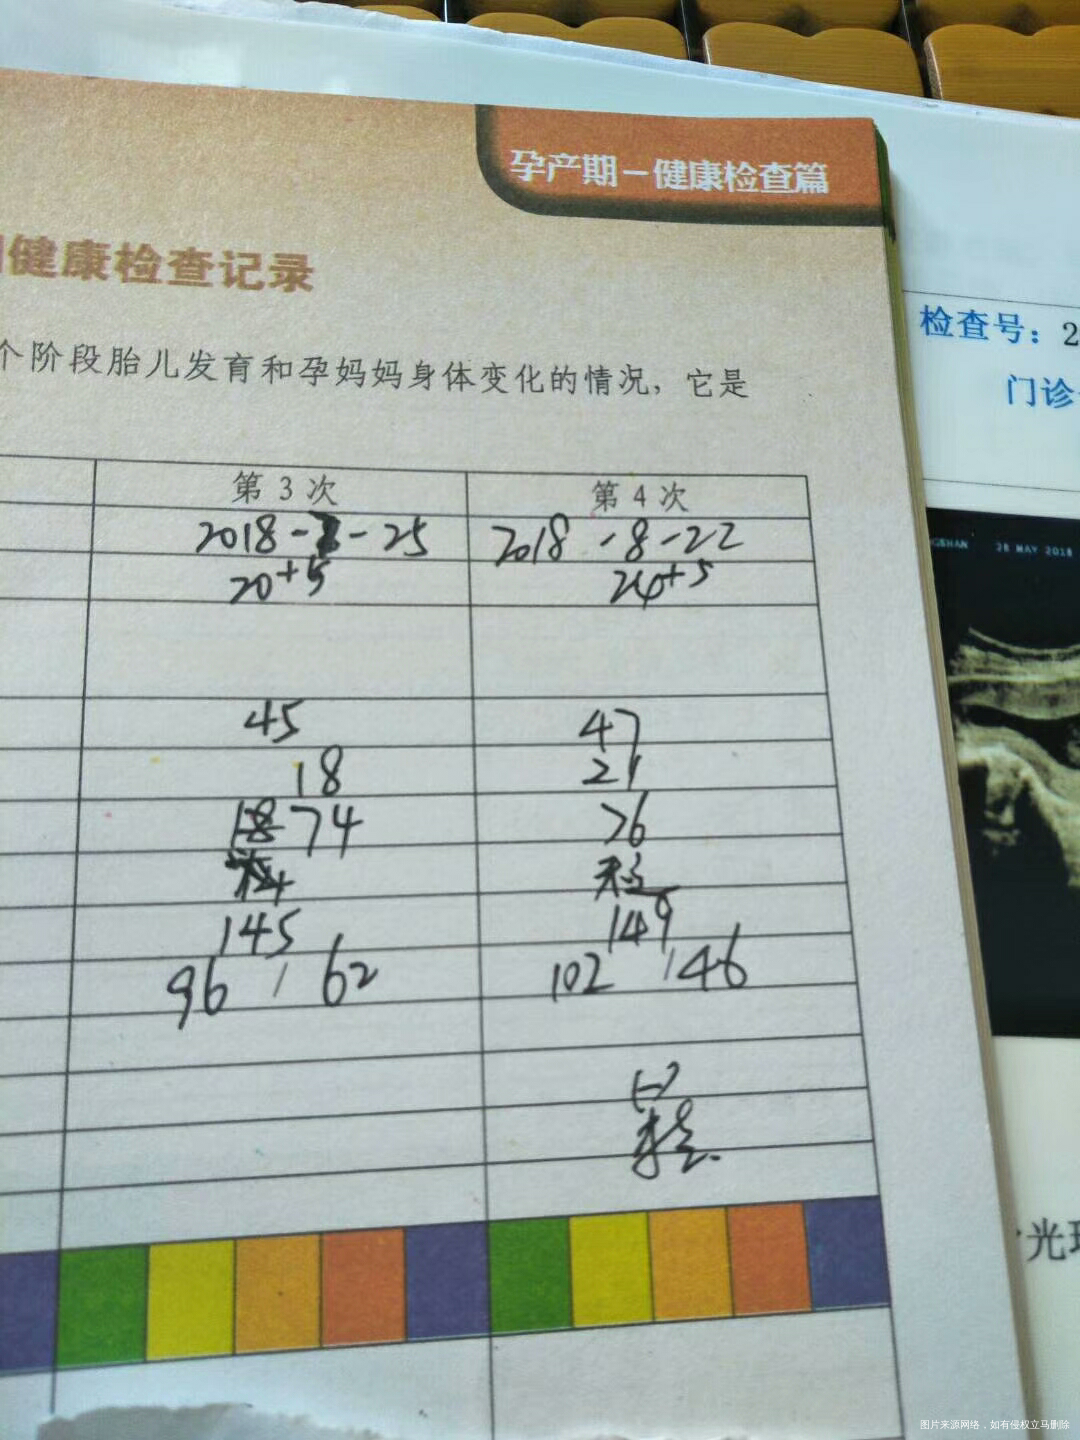 孕产期－健康检查篇
健康检查记录
个阶段胎儿发育和孕妈妈身体变化的情况，它是
检查号：2
门诊
第3次 第4次
2018- -25 2018-8-22
20+5 24+5
45 47
18 21
18 74 76
145 149
96 / 62 102 / 46
(-)
GSHAN 28 MAY 2018
光
图片来源网络，如有侵权立马删除